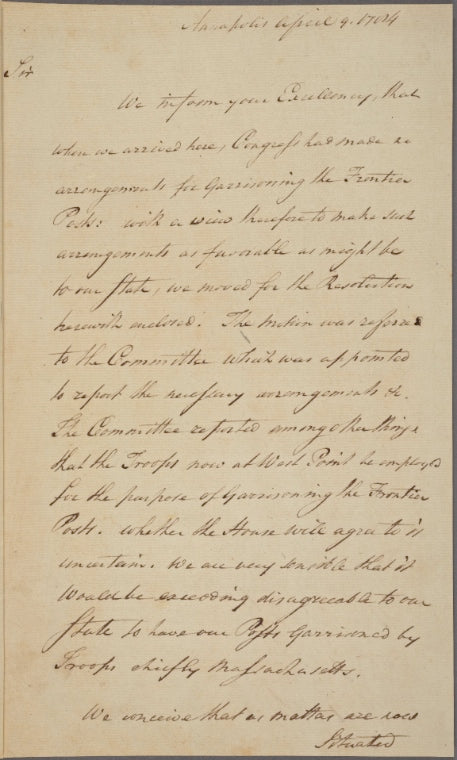 Annapolis April 9. 1784
Sir
We inform your Excellency, that
when we arrived here, Congress had made no
arrangements for Garrisoning the Frontier
Posts: with a view therefore to make such
arrangements as favorable as might be
to our State, we moved for the Resolution
herewith enclosed. The motion was referred
to the Committee which was appointed
to report the necessary arrangements &c.
The Committee reported among other things
that the Troops now at West Point be employed
for the purpose of Garrisoning the Frontier
Posts. whether the House will agree to it
uncertain. We are very sensible that it
Would be exceeding disagreeable to our
State to have our Posts Garrisoned by
Troops chiefly Massachusetts.
We conceive that as mattas are now
Situated